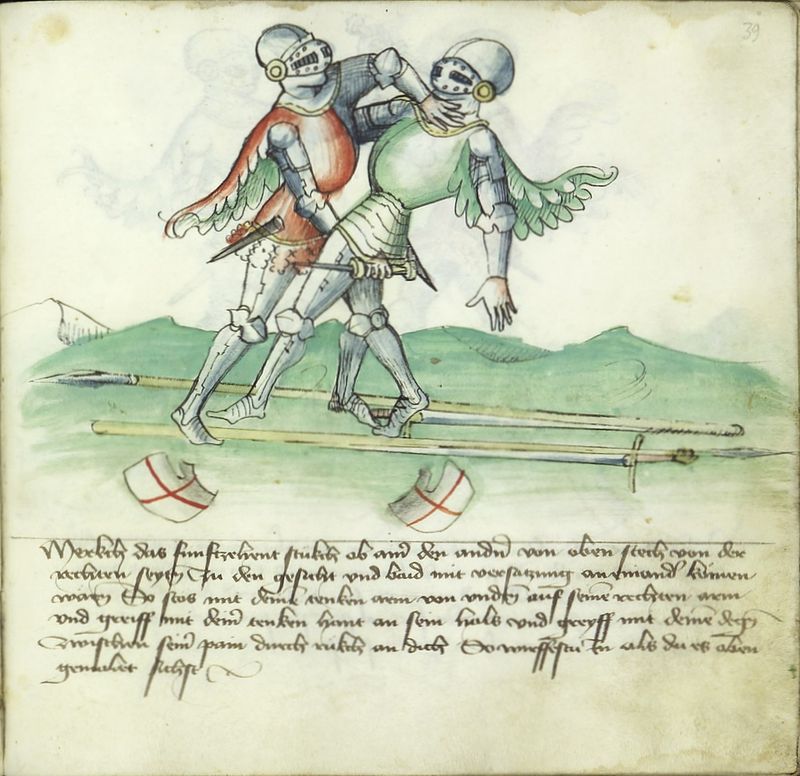 39
Merkch das funfczehent stukch ob ainer den andern von oben stech von der
rechten seyten zu den gesicht und baid mit versaczung an einander komen
warn So stos mit deine tenken arm von unden auf seine rechten arm
und greiff mit deim tenken hant an sein hals und greyff mit deine degen
zwischen sein pain durch rukch an dich So wurffestu in als du es oben
gemalet sichst